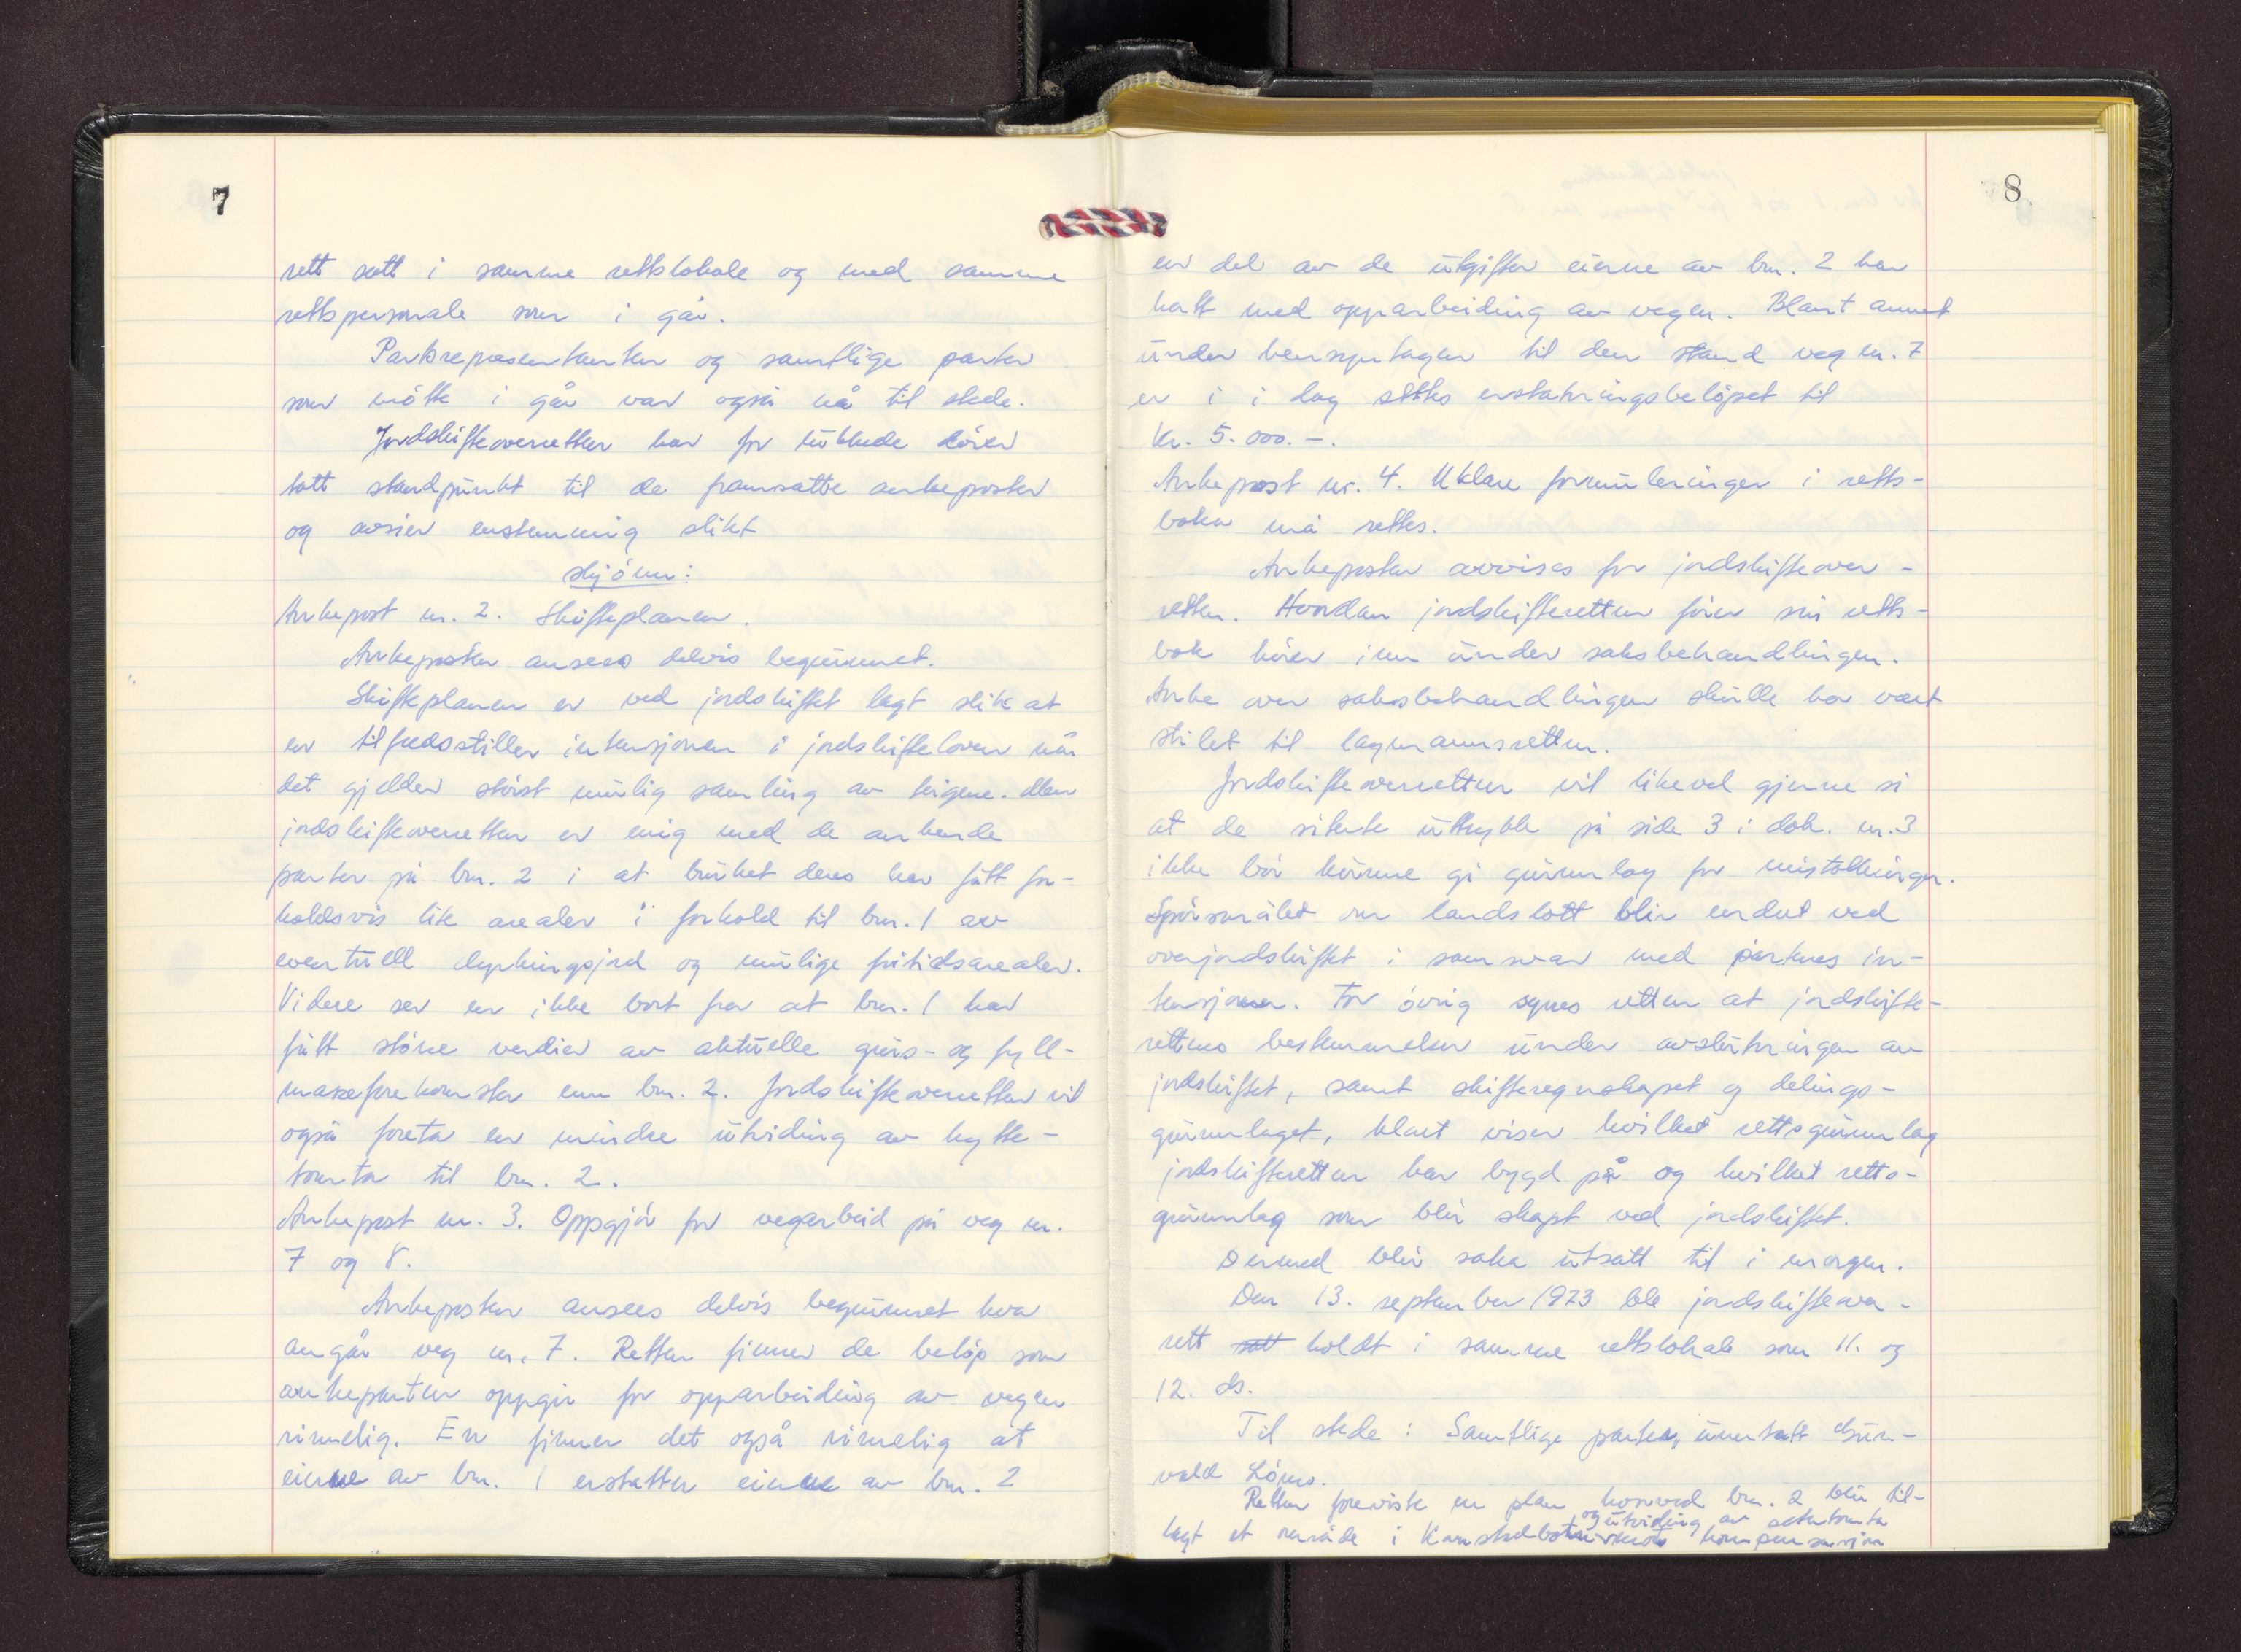 7
rett satt i samme rettslokale og med samme
rettspersonale som i går.
Partsrepresentanter og samtlige parter
som møtte i går var også nå til stede.
Jordskifteoverretten har for lukkede dører
tatt standpunkt til de framsatte ankeposter
og avsier enstemmig slikt
skjønn:
Ankepost nr. 2. Skifteplanen.
Ankeposten ansees delvis begrunnet.
Skifteplanen er ved jordskiftet lagt slik at
en tilfredsstiller intensjonen i jordskifteloven når
det gjelder størst mulig samling av teigene. Men
jordskifteoverretten er enig med de ankende
parter på bnr. 2 i at bruket deres har fått for-
holdsvis lite arealer i forhold til bnr. 1 av
eventuell dyrkingsjord og mulige fritidsarealer.
Videre ser en ikke bort fra at bnr. 1 har
fått større verdier av aktuelle grus- og fyll-
massforekomster enn bnr. 2. Jordskifteoverretten vil
også foreta en mindre utviding av hytte-
tomta til bnr. 2.
Ankepost nr. 3. Oppgjør for vegarbeid på veg nr.
7 og 8.
Ankeposten ansees delvis begrunnet hva
angår veg nr. 7. Retten finner de beløp som
ankeparten oppgir for opparbeiding av vegen
rimelig. En finner det også rimelig at
eierne av bnr. 1 erstatter eierne av bnr. 2
8
en del av de utgifter eierne av bnr. 2 har
hatt med opparbeiding av vegen. Blant annet
under hensyntagen til den stand veg nr. 7
er i i dag settes erstatningsbeløpet til
kr. 5.000.-.
Ankepost nr. 4. Uklare formuleringer i retts-
boka må rettes.
Ankeposten avvises for jordskifteover-
retten. Hvordan jordskifteretten fører sin retts-
bok hører inn under saksbehandlingen.
Anke over saksbehandlingen skulle ha vært
stilet til lagmannsretten.
Jordskifteoverretten vil likevel gjerne si
at de siterte uttrykk på side 3 i dok. nr. 3
ikke bør kunne gi grunnlag for mistolkninger.
Spørsmålet om landslott blir endret ved
overjordskiftet i samsvar med partenes in-
tensjoner. For øvrig synes retten at jordskifte-
rettens bestemmelser under avslutningen av
jordskiftet, samt skifteregnskapet og delings-
grunnlaget, klart viser hvilket rettsgrunnlag
jordskifteretten har bygd på og hvilket retts-
grunnlag som blir skapt ved jordskiftet.
Dermed blir saka utsatt til i morgen.
Den 13. september 1973 ble jordskifteover-
rett satt holdt i samme rettslokale som 11. og
12. ds.
Til stede: Samtlige parter, unntatt Gun-
vald
Retten foreviste en plan hvorved bnr. 2 blir til-
og utviding av setertomta
lagt et område i kompensasjon